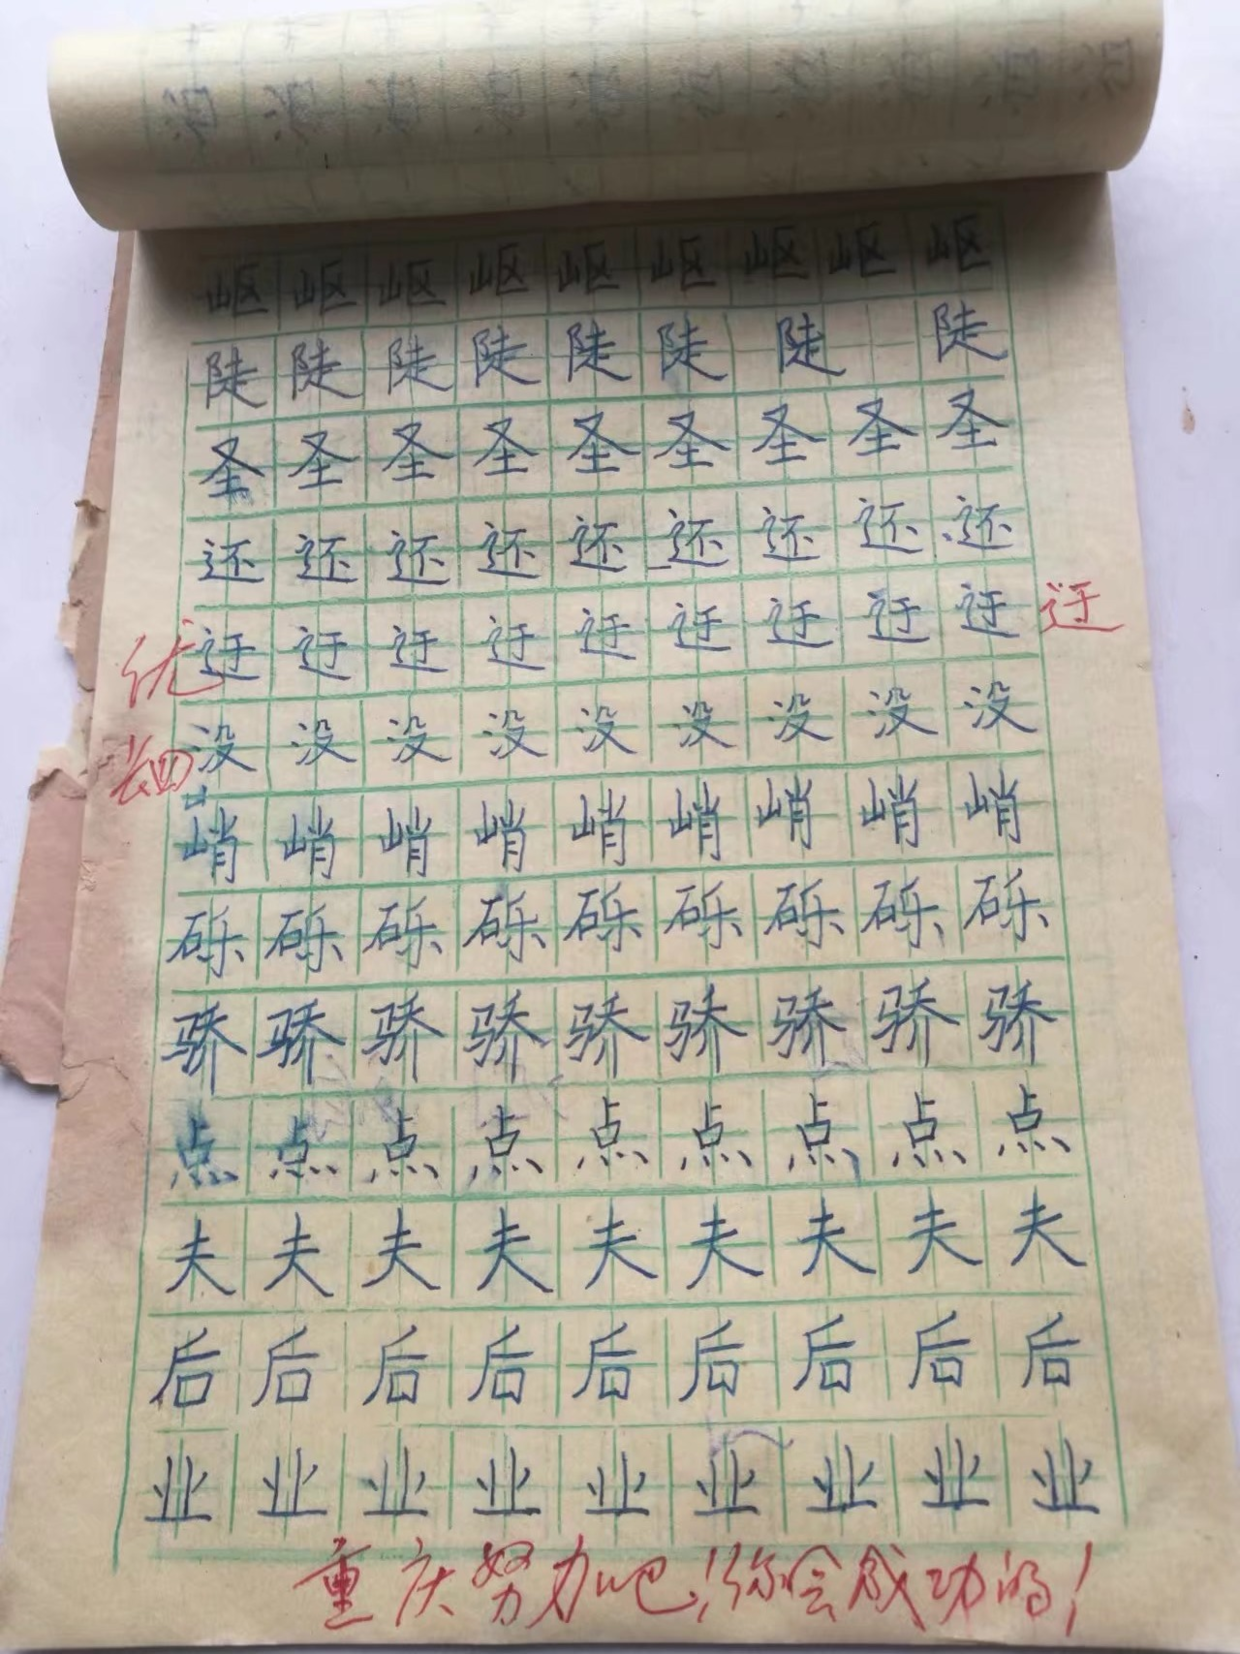 岖岖岖岖岖岖岖岖岖
陡陡陡陡陡陡陡陡
圣圣圣圣圣圣圣圣圣
还还还还还还还还还
迂迂迂迂迂迂迂迂迂 迂
优
没没没没没没没没没
峭峭峭峭峭峭峭峭峭
砾砾砾砾砾砾砾砾砾
骄骄骄骄骄骄骄骄骄
点点点点点点点点点
夫夫夫夫夫夫夫夫夫
后后后后后后后后后
业业业业业业业业业
重庆努力吧!你会成功的!